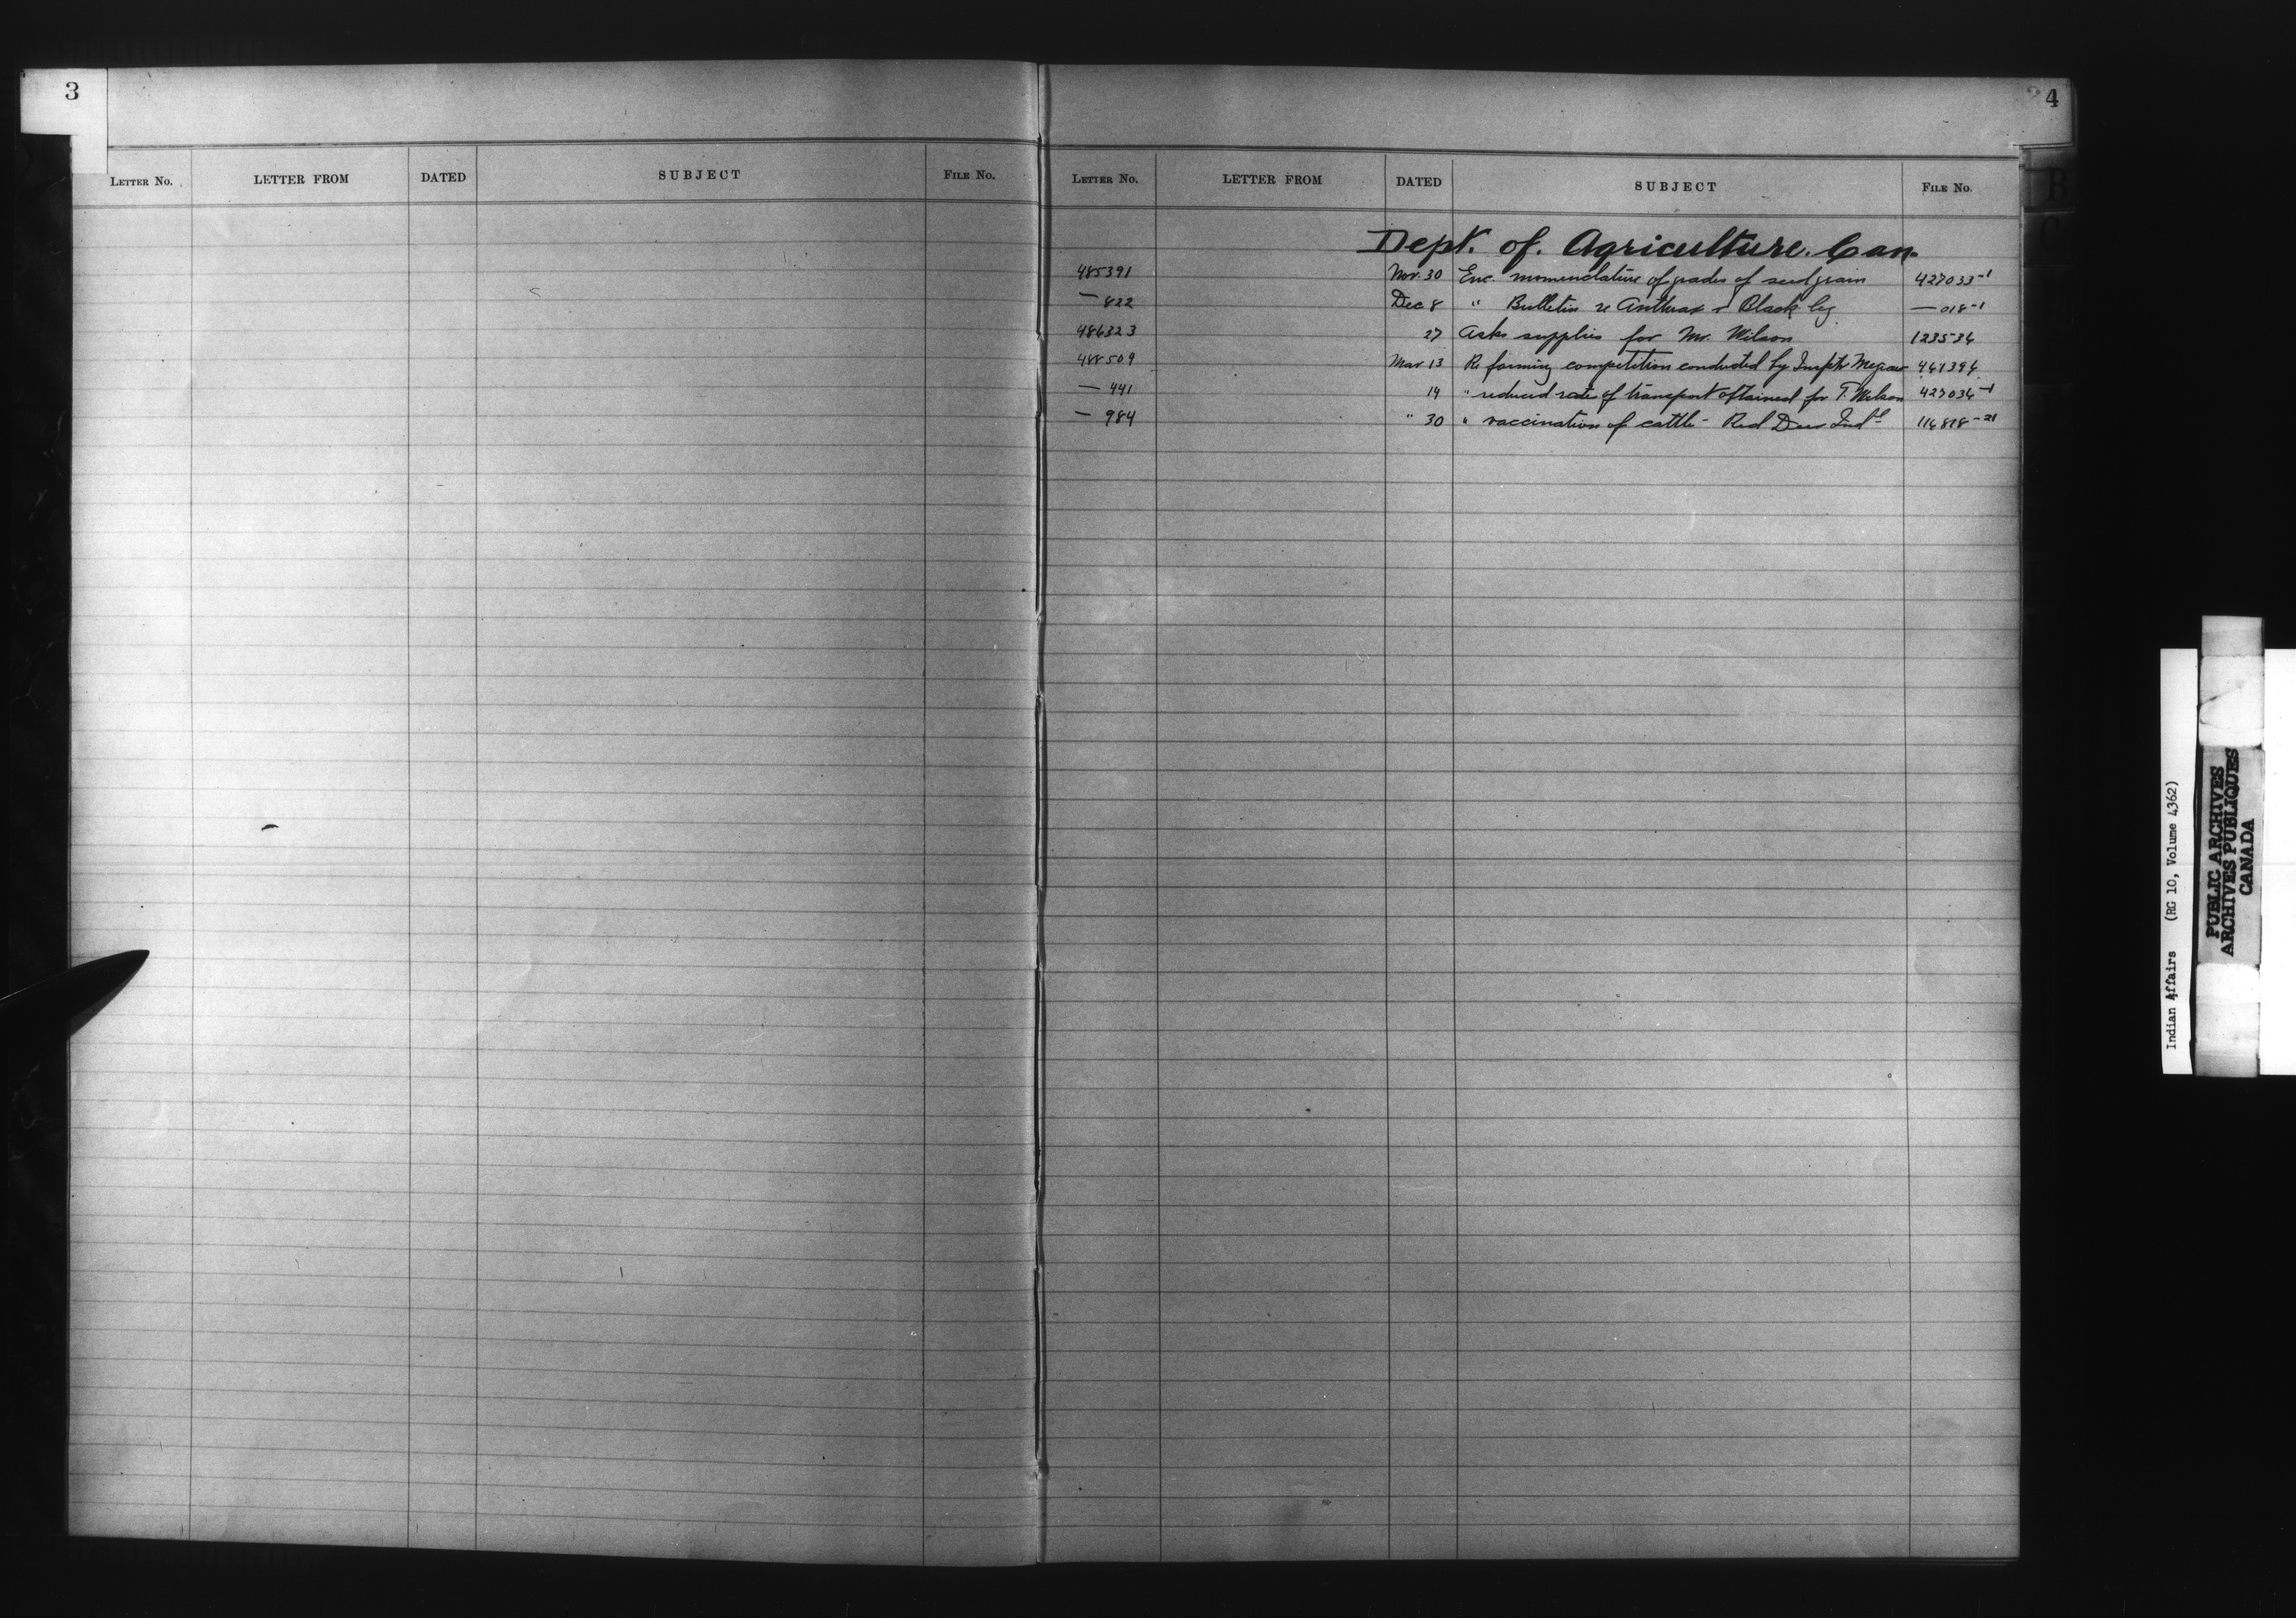 3
LETTER NO. LETTER FROM DATED SUBJECT FILE NO.
4
LETTER NO. LETTER FROM DATED SUBJECT FILE NO.
Dept. of. Agriculture. Can.
485391 Nov. 30 Enc. nomenclature of grades of seed grain 427033-1
— 822 Dec 8 " Bulletin re Anthrax & Black leg — 018-1
486323 27 Asks supplies for Mr. Wilson 123536
488509 Mar 13 Re farming competition conducted by Insptr Megraw 461396
— 441 14 " reduced rate of transport obtained for T. Wilson 427036-1
— 984 " 30 " vaccination of cattle - Red Deer Indl 116818-21
Indian Affairs (RG 10, Volume 4362)
PUBLIC ARCHIVES
ARCHIVES PUBLIQUES
CANADA